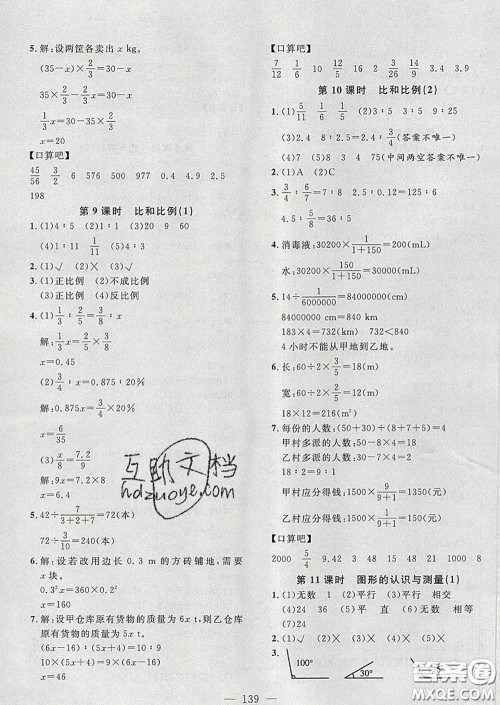 5.解:设两筐各卖出 x kg。
(35-x)×2/3=30-x
35×2/3-2/3x=30-x
x-2/3x=30-35×2/3
1/3x=20/3
x=20
【口算吧】
45/56 3/2 6 576 500 977 0.4 4.9 0.3
198
第9课时 比和比例(1)
1.(1)4:5 (2)1:1 (3)20 9 60
(4)3:1 1/11 (5)4:3
2.(1)√ (2)×
3.(1)正比例 (2)不成比例
(3)正比例 (4)反比例
4.(1)1/3:2/5=3/5:x
解:1/3x=2/5×3/5
(2)3/4:x=0.875:20%
解:0.875x=3/4×20%
x=6/35
(3)x/7.2=8/9
解:9x=7.2×8
x=6.4
5.42÷7/(3+2+7)=72(本)
6.解:设若改用边长 0.3 m 的方砖铺地,需要
x块。
x=160
7.解:设甲仓库原有货物的质量为 6x t,则乙仓
库原有货物的质量为 5x t。
(6x-16):(5x-16)=10:9
10×(5x-16)=9×(6x-16)
x=46
【口算吧】
第10课时 比和比例(2)
1.(1)5/11 1/6 1/5 (2)3:5 9:25
(3)2.4 7/8:7/4=3/2:3(答案不唯一)
(4)24 6 4 75(中间两空答案不唯一)
2.(1)A (2)C
3.3/4:6/7=7/8 5/8:5/6=3/4
3/5:2/5=3/2 6/5:5/6=36/25
4.消毒液:30200×1/(1+150)=200(mL)
水:30200×150/(1+150)=30000(mL)
5.14÷1/6000000=84000000(cm)
84000000 cm=840 km
183×4=732(km) 732<840
4小时不能从甲地到乙地。
18×12=216
7.每份的人数:(50+30)÷(8+7+5)=4
甲村多派的人数:50-8×4=18
乙村多派的人数:30-7×4=2
甲村应分得钱:1500×9/(9+1)=1350(元)
乙村应分得钱:1500×1/(9+1)=150(元)
【口算吧】
2000 5/4 9.42 3 48 15 48 1000 8 29
第11课时 图形的认识与测量(1)
1.(1)无数 1 (2)平行 (3)平行 相交
(4)24 36 (5)平 直 (6)无数 60
2.(1)√ (2)× (3)√
3. 100° 30°
139
互助文档
hdzuoye.com
答案圈
MXQE.COM